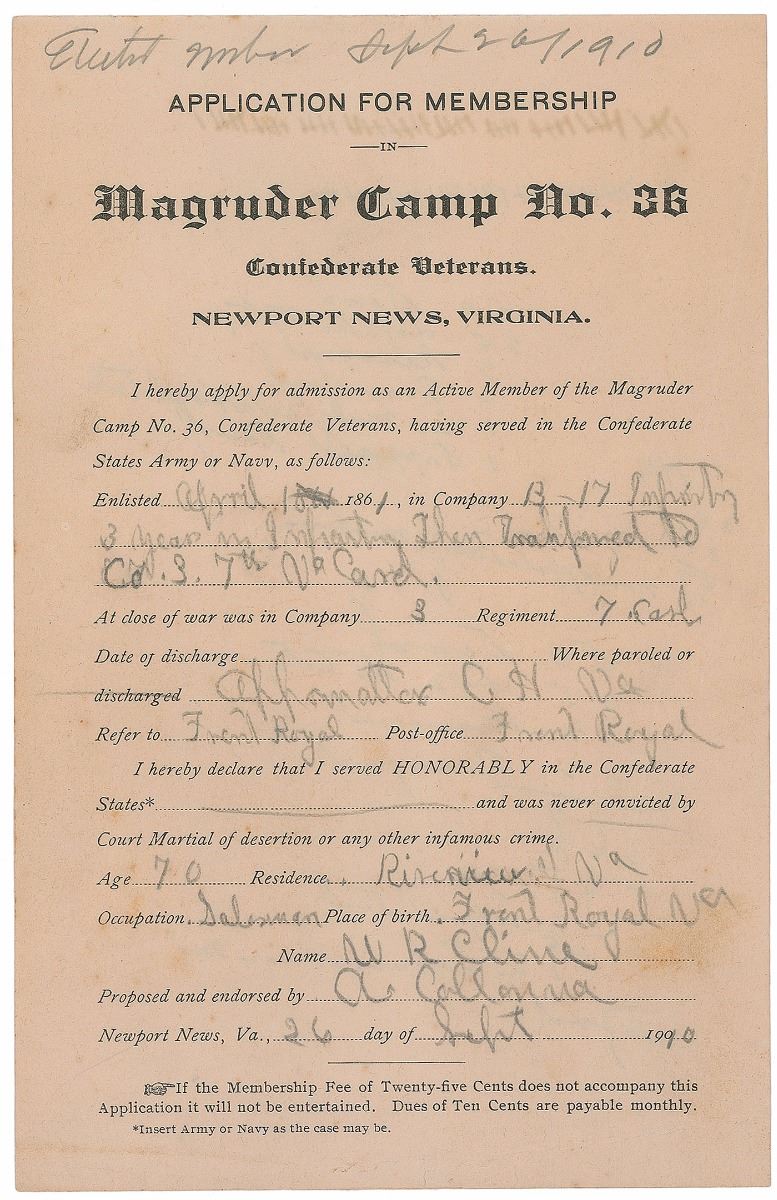 Elected member Sept 26/1910
APPLICATION FOR MEMBERSHIP
—IN—
Magruder Camp No. 36
Confederate Veterans.
NEWPORT NEWS, VIRGINIA.
I hereby apply for admission as an Active Member of the Magruder
Camp No. 36, Confederate Veterans, having served in the Confederate
States Army or Navy, as follows:
Enlisted April 1861, in Company B - 17 Infantry
3 years in Infantry Then Transferred to
Co. 3. 7th Va
At close of war was in Company 3 Regiment 7
Date of discharge Where paroled or
discharged Appomattox C H Va
Refer to Front Royal Post-office Front Royal
I hereby declare that I served HONORABLY in the Confederate
States* and was never convicted by
Court Martial of desertion or any other infamous crime.
Age 70 Residence Riverview Va
Occupation Salesman Place of birth Front Royal Va
Name W R Cline
Proposed and endorsed by A Collonna
Newport News, Va., 26 day of Sept 1910
☞If the Membership Fee of Twenty-five Cents does not accompany this
Application it will not be entertained. Dues of Ten Cents are payable monthly.
*Insert Army or Navy as the case may be.